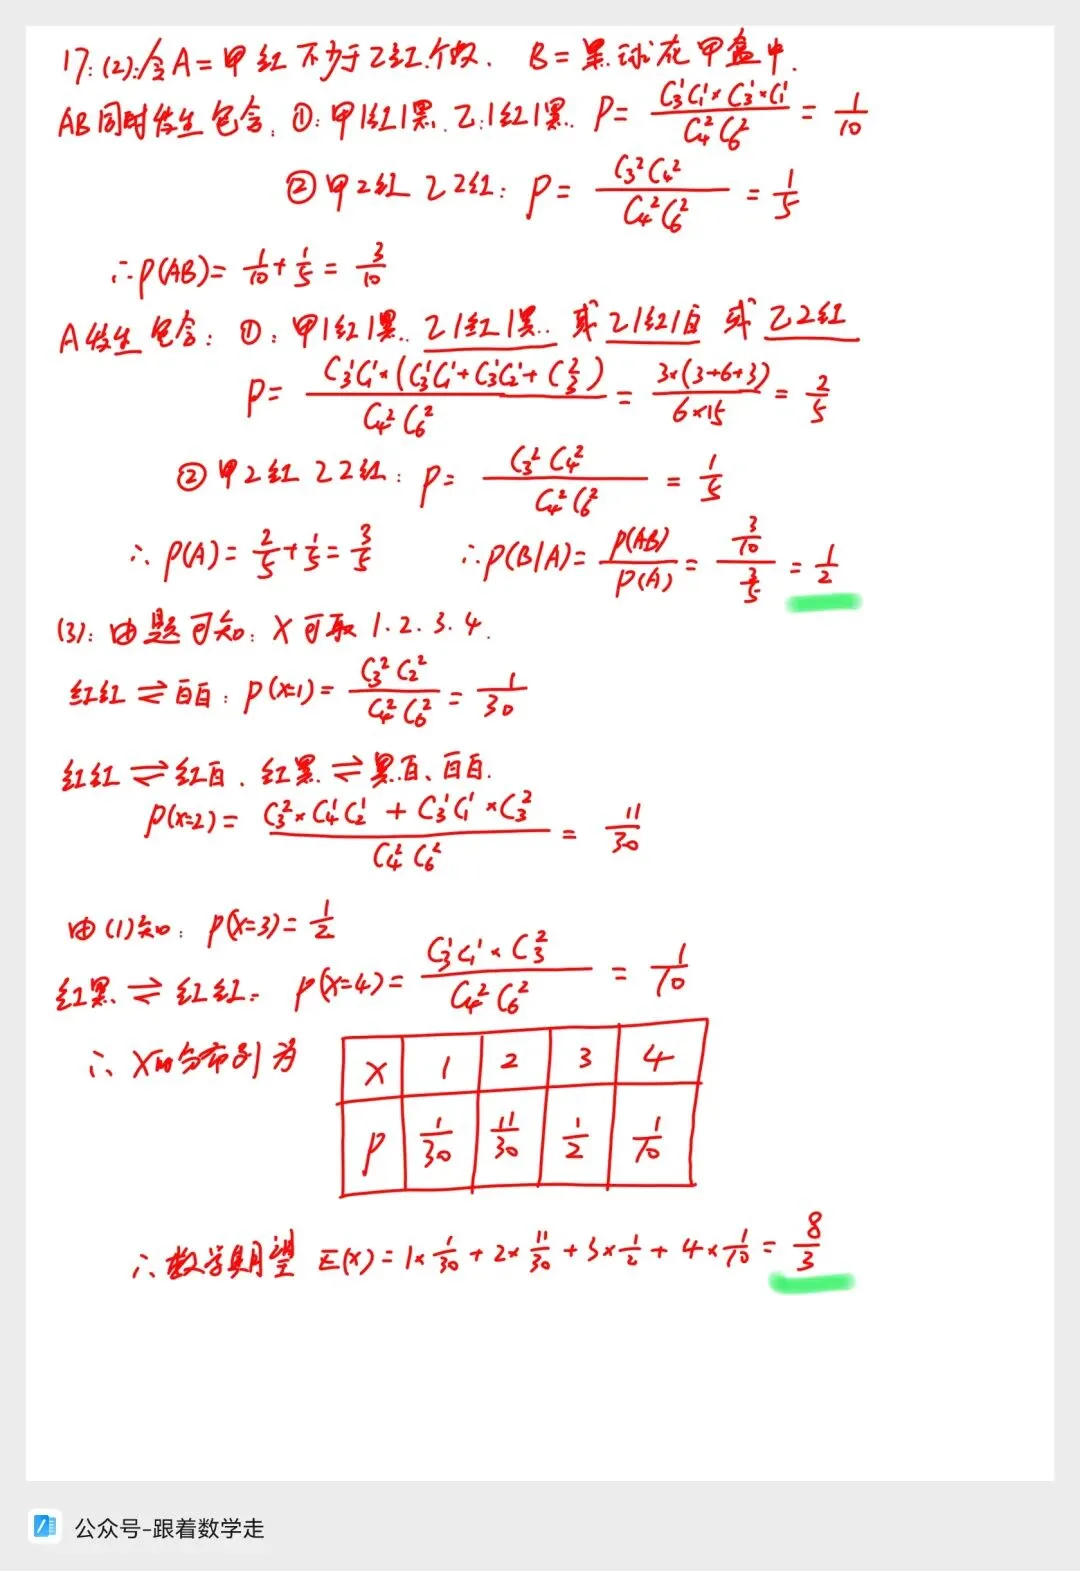 17:(2):令A=甲红不少于乙红个数. B=黑球在甲盒中.
AB同时发生包含:①:甲1红1黑.乙:1红1黑. P= C₃¹C₁¹×C₃¹×C₁¹ / C₄²C₆² = 1/10
②甲2红乙2红: P= C₃²C₄² / C₄²C₆² = 1/5
∴P(AB)= 1/10 + 1/5 = 3/10
A发生包含:①:甲1红1黑..乙1红1黑..或乙1红1白或乙2红
P= C₃¹C₁¹×(C₃¹C₁¹+C₃¹C₂¹+C₃²) / C₄²C₆² = 3×(3+6+3) / 6×15 = 2/5
②甲2红乙2红: P= C₃²C₄² / C₄²C₆² = 1/5
∴P(A)= 2/5 + 1/5 = 3/5 ∴P(B|A)= P(AB)/P(A) = 3/10 / 3/5 = 1/2
(3):由题可知:X可取1.2.3.4.
红红⇌白白:P(X=1)= C₃²C₂² / C₄²C₆² = 1/30
红红⇌红白.红黑⇌黑白、白白.
P(X=2)= C₃²×C₄¹C₂¹ + C₃¹C₁¹×C₃² / C₄²C₆² = 11/30
由(1)知:P(X=3)= 1/2
红黑⇌红红: P(X=4)= C₃¹C₁¹×C₃² / C₄²C₆² = 1/10
∴X的分布列为
X 1 2 3 4
P 1/30 11/30 1/2 1/10
∴数学期望 E(X)=1×1/30+2×11/30+3×1/2+4×1/10= 8/3
公众号-跟着数学走